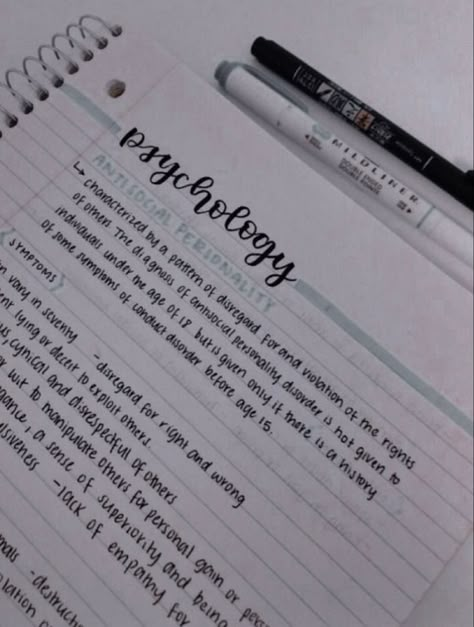 MILDLINER
DOUBLE ENDED
psychology
ANTISOCIAL PERSONALITY
↳ characterized by a pattern of disregard for and violation of the rights
of others. The diagnosis of antisocial personality disorder is not given to
individuals under the age of 18 but is given only if there is a history
of some symptoms of conduct disorder before age 15.
SYMPTOMS
vary in severity -disregard for right and wrong
lying or deceit to exploit others
, cynical and disrespectful of others
wit to manipulate others for personal gain or
, a sense of superiority and being
-lack of empathy for